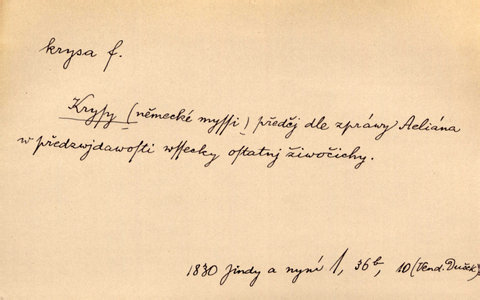 krysa f.
Kryſy (německé myſſi) předčj dle zpráwy Aeliána
w předzwjdawoſti wſſecky oſtatnj žiwočichy.
1830 Jindy a nynj 1, 36b, 10 (Vend. Dušek)